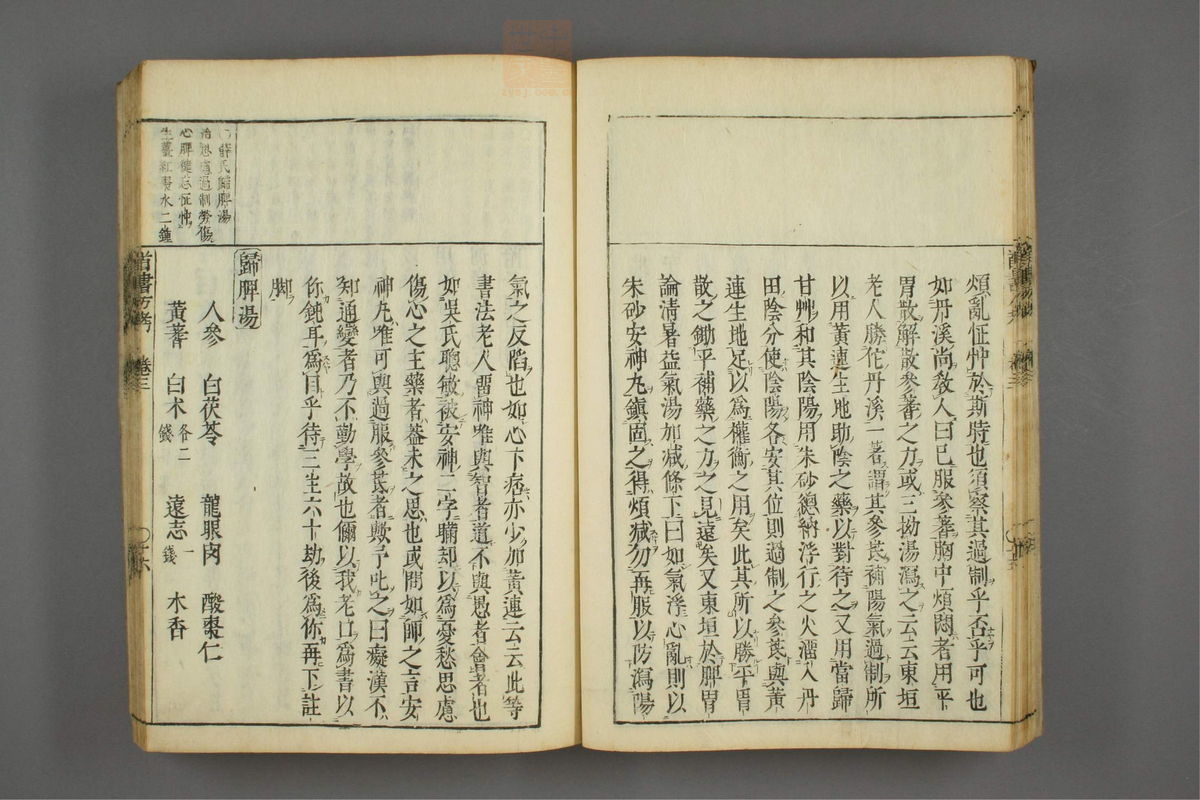 煩亂怔忡於斯時也須察其過制乎否乎可也
如丹溪尚教人曰已服參蓍胸中煩悶者用平
胃散解散參蓍之力或三拗湯瀉之云云東垣
老人勝佗丹溪一著謂其參芪補陽氣過制所
以用黃連生地助陰之藥以對待之又用當歸
甘艸和其陰陽用朱砂總納浮行之火溜入丹
田陰分使陰陽各安其位則過制之參芪與黃
連生地足以為權衡之用矣此其所以勝平胃
散之鋤平補藥之力之見遠矣又東垣於脾胃
論清暑益氣湯加減條下曰如氣浮心亂則以
朱砂安神丸鎮固之得煩減勿再服以防瀉陽
氣之反陷也如心下痞亦少加黃連云云此等
書法老人留神唯與智者道不與愚者會者也
如吳氏聰敏被安神二字瞞却以為憂愁思慮
傷心之主藥者蓋未之思也或問如師之言安
神丸唯可與過服參芪者歟予叱之曰癡漢不
知通變者乃不勤學故也儞以我老口為書以
你鈍耳為目乎待三生六十劫後為你再下註
脚
歸脾湯
薛氏歸脾湯
治思慮過制勞傷
心脾健忘怔忡
生薑紅棗水二鍾
人參 白茯苓 龍眼肉 酸棗仁
黃蓍 白术各二錢 遠志一錢 木香
醫書方考 卷三